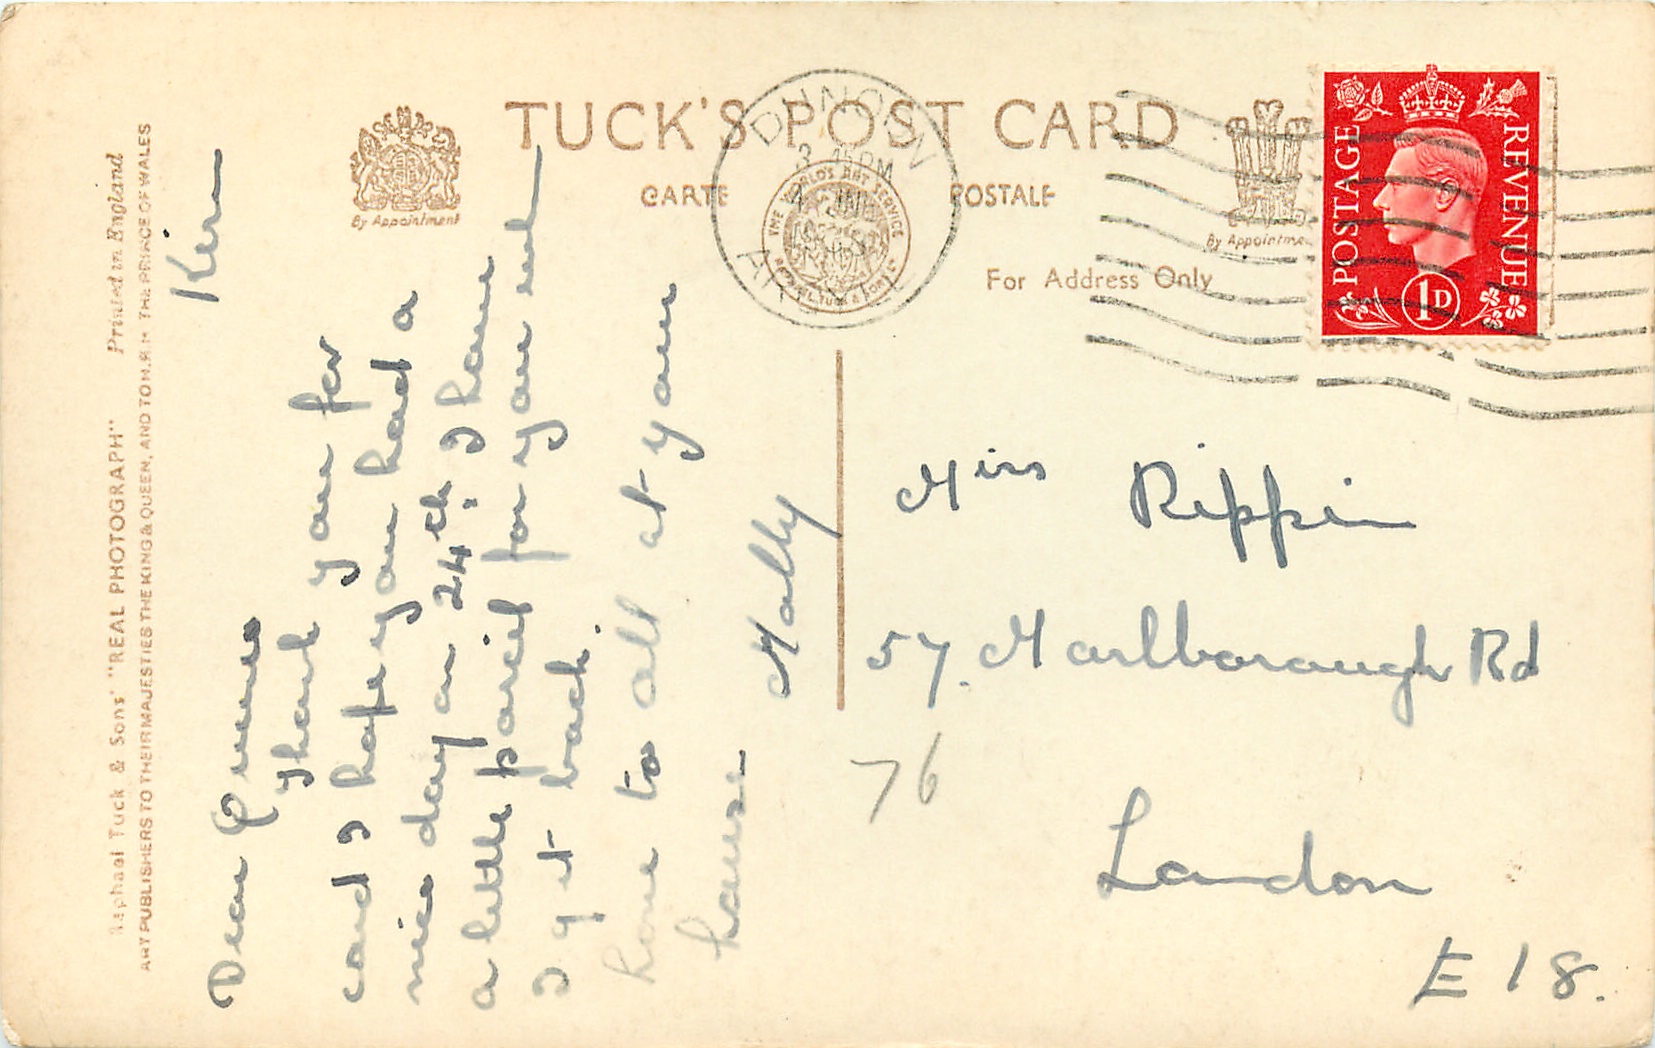 TUCK'S POST CARD
CARTE POSTALE
By Appointment
By Appointme
For Address Only
DUNOON
3 45 PM
JNE
ARGYLL
THE WORLD'S ART SERVICE
RAPHAEL TUCK & SONS LD
POSTAGE
REVENUE
1D
Raphael Tuck & Sons' "REAL PHOTOGRAPH" Printed in England
ART PUBLISHERS TO THEIR MAJESTIES THE KING & QUEEN, AND TO H.R.H. THE PRINCE OF WALES
Kirn
Dear
Thank you for
card I hope you had a
nice day on 24th. I have
a little parcel for you when
I get back.
love to all at your
house
Mally
Miss Rippin
57. Marlborough Rd
76
London
E 18.